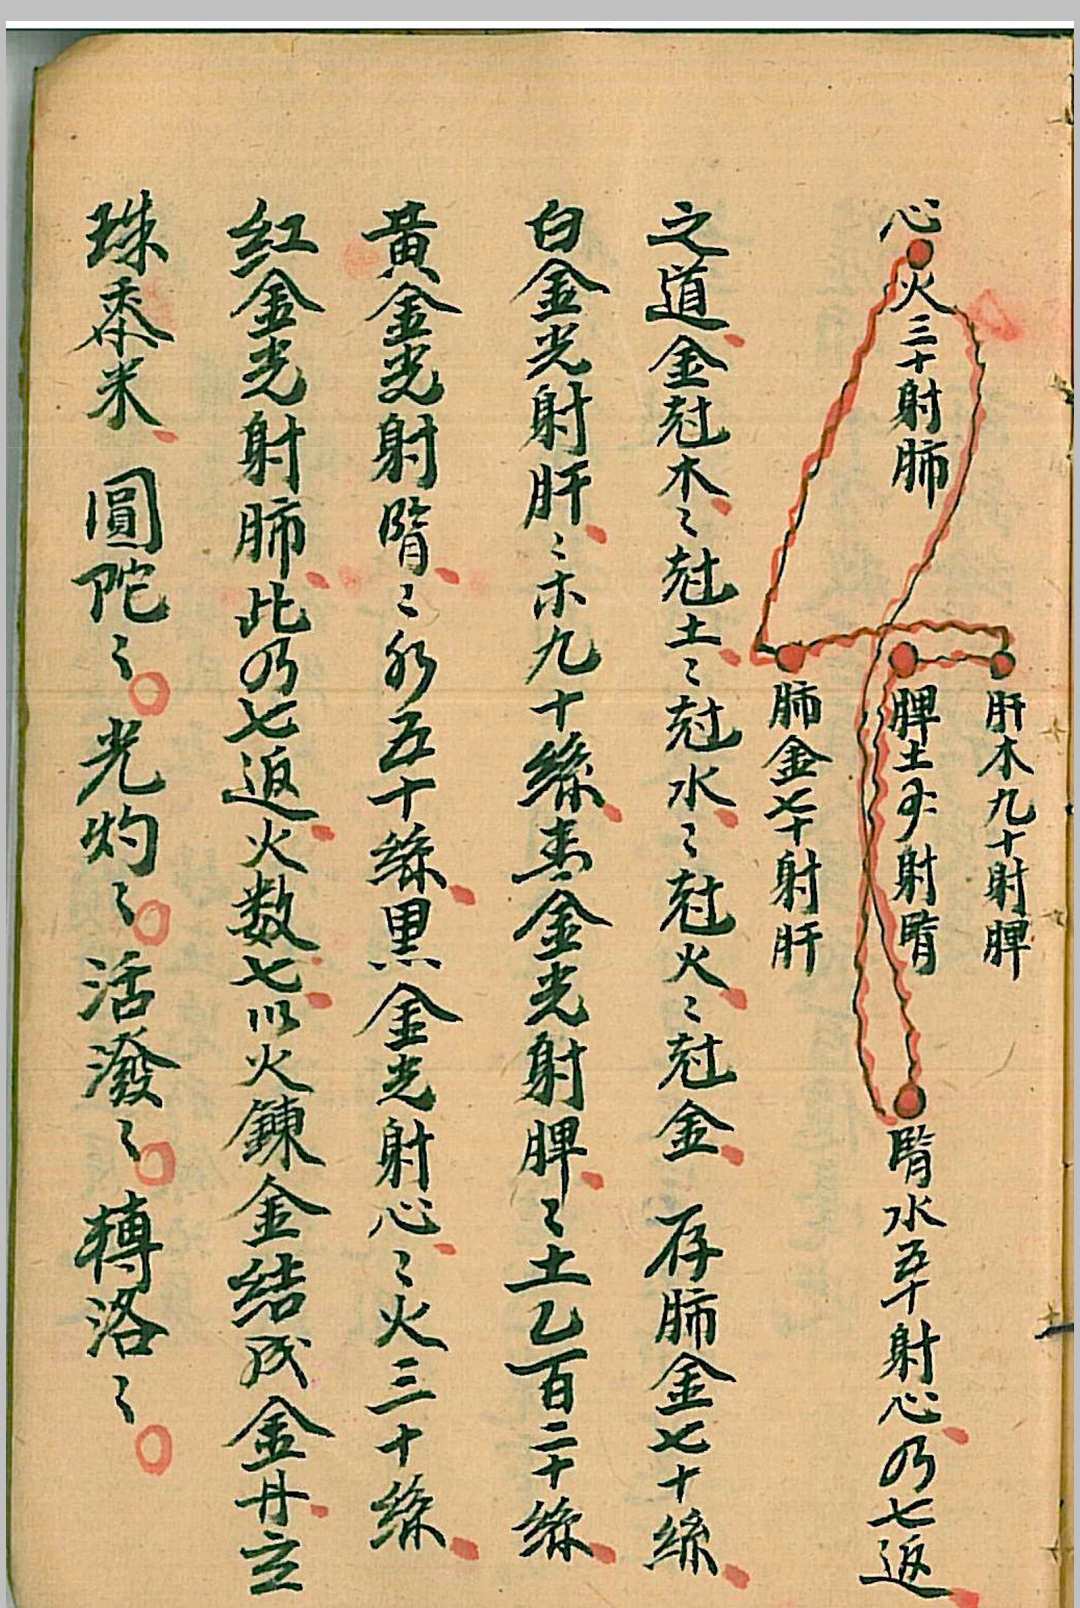 心
火三十射肺
肝木九十射脾
脾土 射腎
肺金七十射肝
腎水五十射心乃七返
之道金尅木〻尅土〻尅水〻尅火〻尅金 存肺金七十絲
白金光射肝〻木九十絲青金光射脾〻土乙百二十絲
黃金光射腎〻水五十絲黑金光射心〻火三十絲
紅金光射肺此乃七返火数七以火鍊金結成金丹立
珠黍米 圓陀〻光灼〻活潑〻轉洛〻